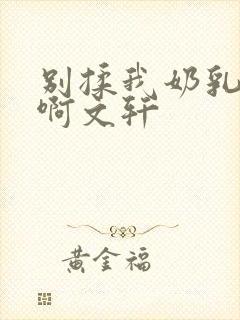 别揉我奶乳
啊文轩
黄金福